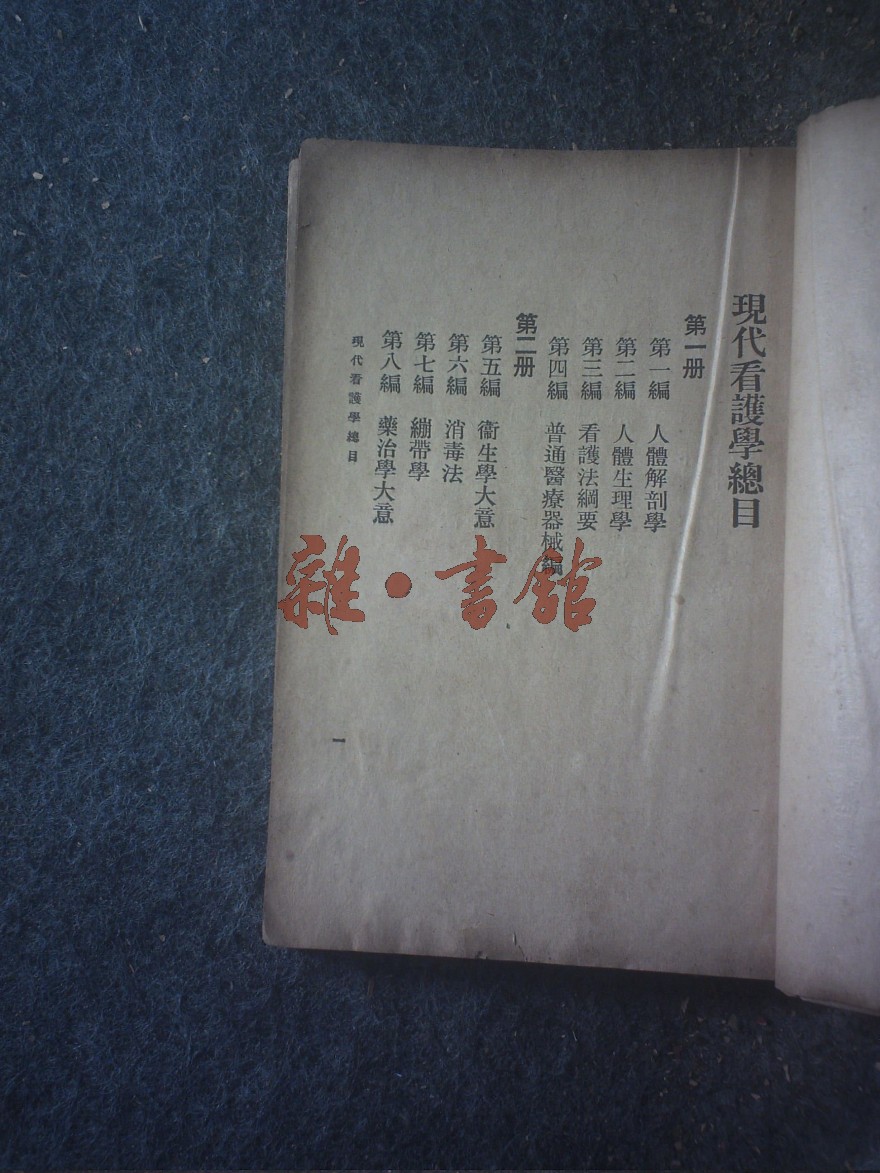 現代看護學總目
第一册
第一編　人體解剖學
第二編　人體生理學
第三編　看護法綱要
第四編　普通醫療器械編
第二册
第五編　衞生學大意
第六編　消毒法
第七編　繃帶學
第八編　藥治學大意
現代看護學總目
一
雜·書館